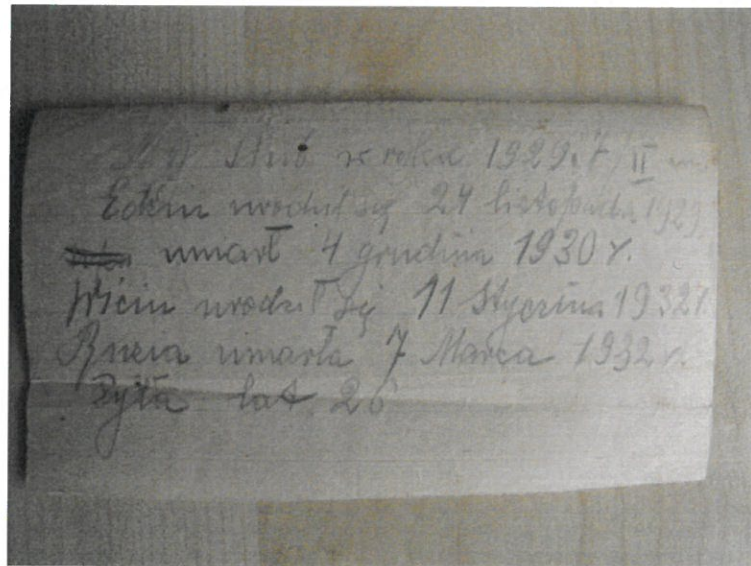 ślub w roku 1929. 7/II
Edziu urodził się 24 listopada 1929.
umarł 4 grudnia 1930 r.
urodził się 11 Stycznia 1932 r.
umarła 7 Marca 1932 r.
żyła lat 26